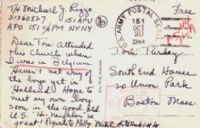 T/4 Michael J. Rizzo
31360527 151 APU
APO 151 % PM NYNY
Dear Tom: Attended
this Church when
I was in Belgium.
Haven't met any of
the boys yet in
Holland. Hope to
meet my own boy
soon, in the good old
U.S. H. is
great. Regards to Molly
U.S. ARMY POSTAL SERVICE
151
30
1944
Free
Tom Turkey
South End House
20 Union Park
Boston Mass.